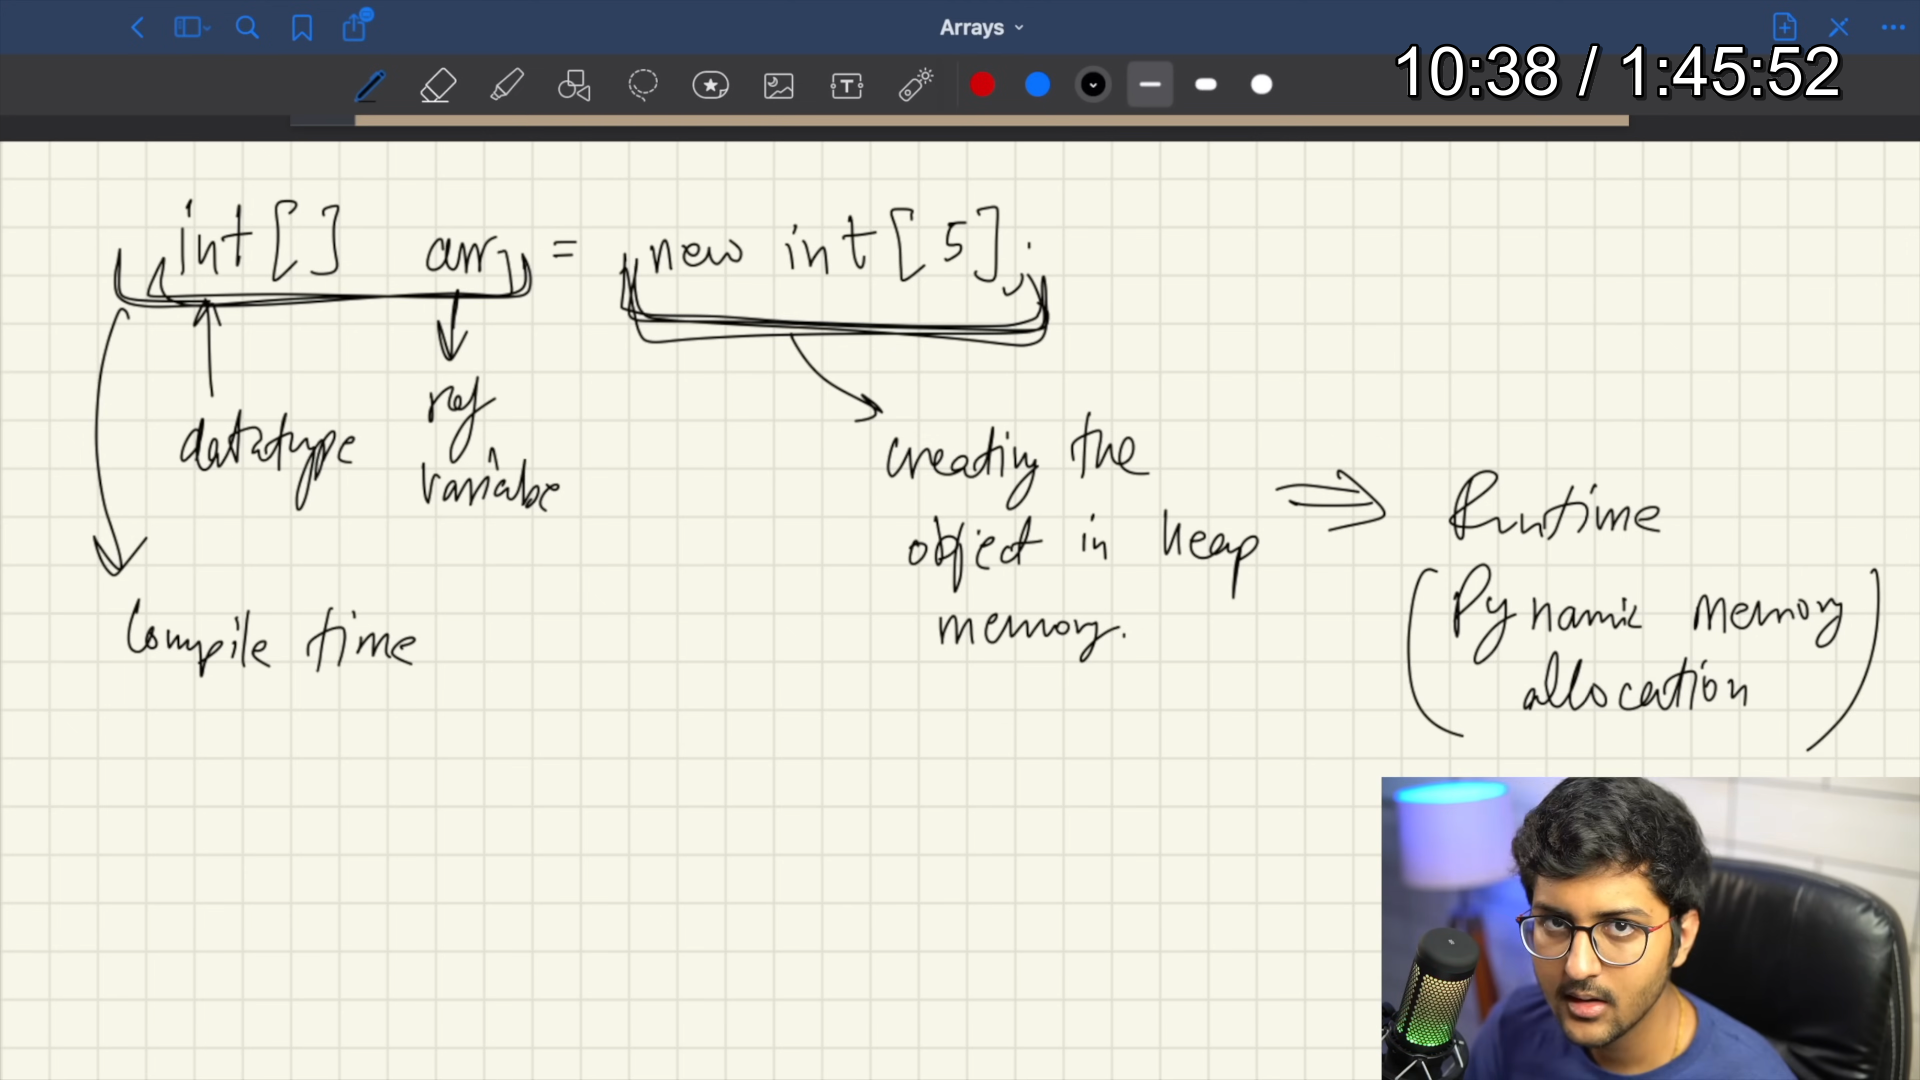 Arrays
10:38 / 1:45:52
int[] arr = new int[5];
datatype
ref
variabe
Compile time
creating the
object in heap
memory.
Runtime
(Dynamic memory
allocation)